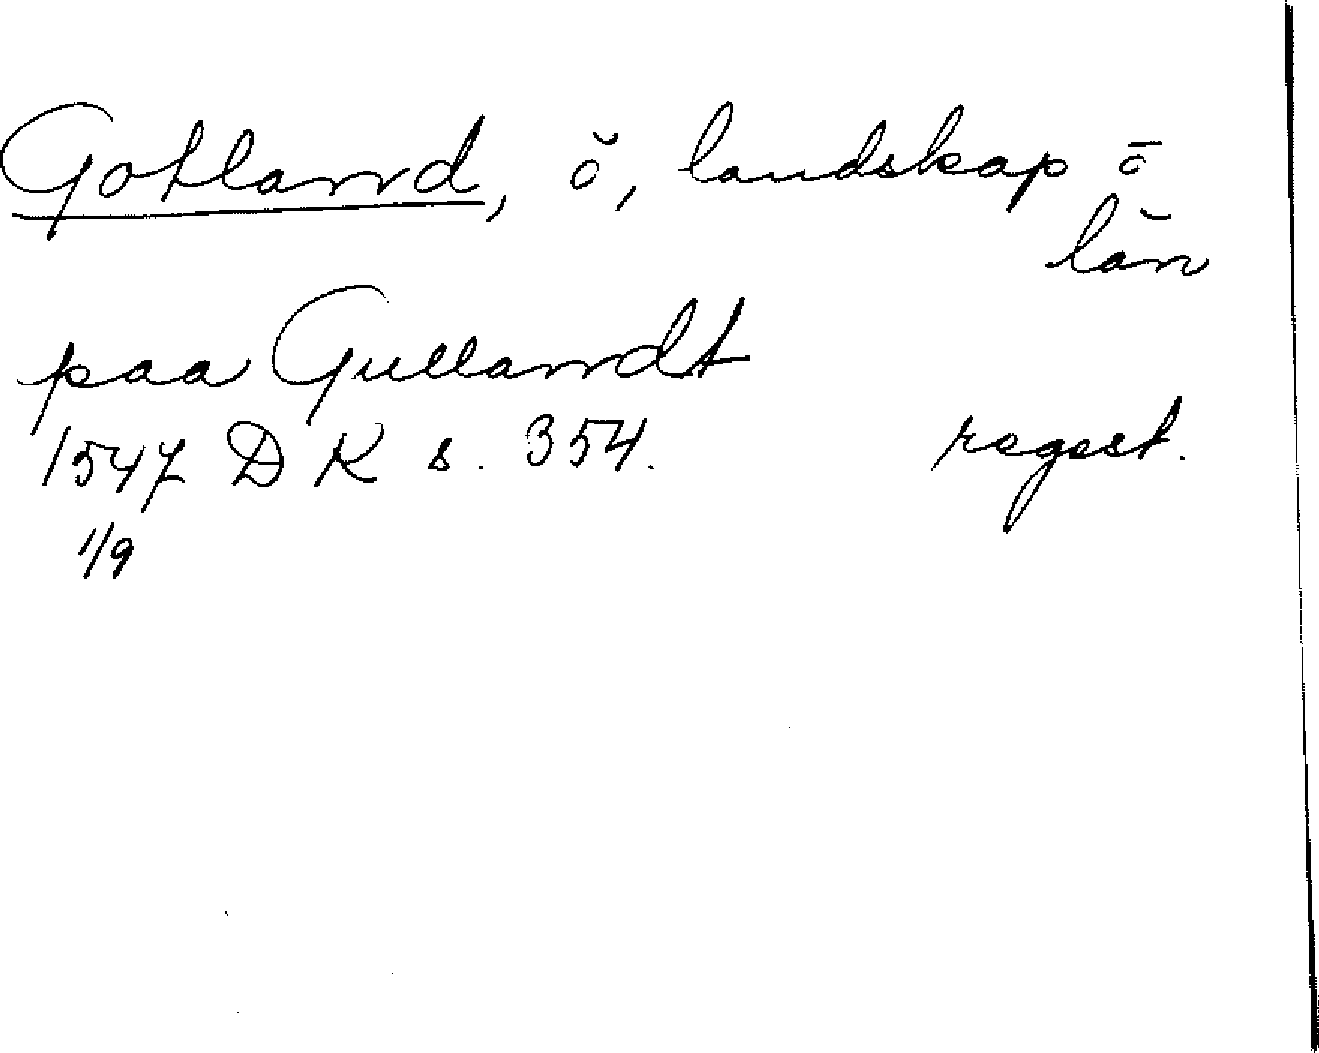 Gotland, ö, landskap ō
län
paa Gullandt
1547 DK s. 354. regest.
1/9